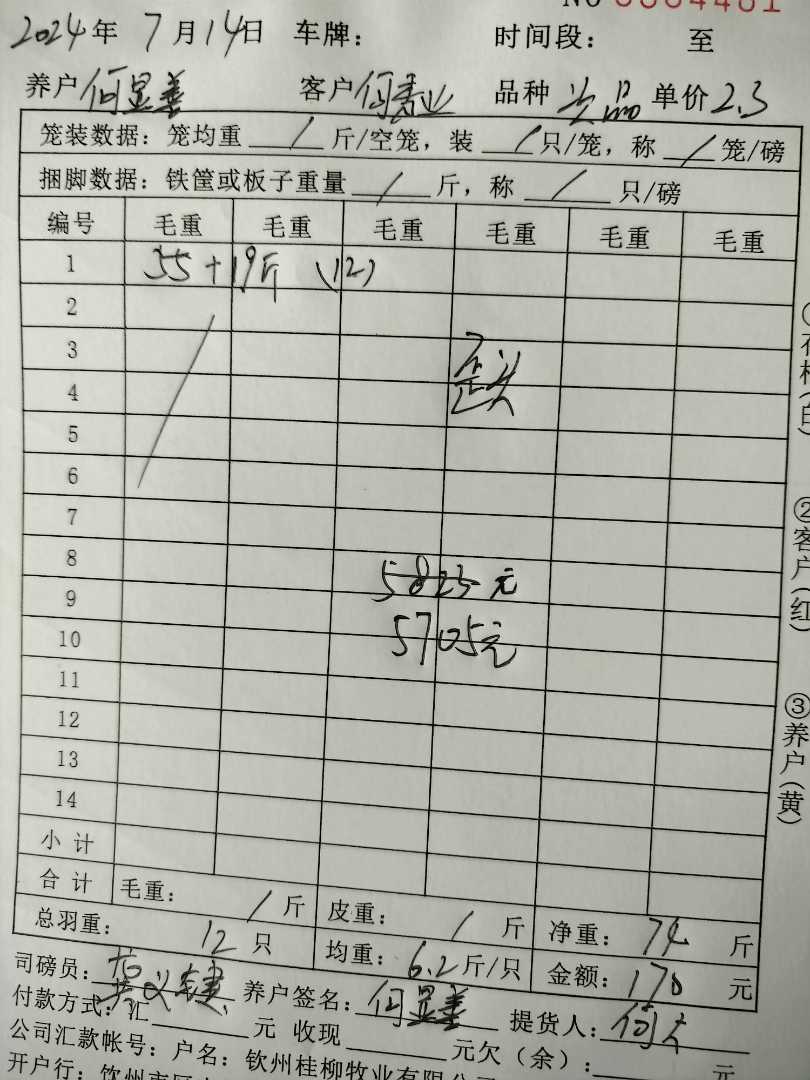 2024年 7月14日 车牌： 时间段： 至
养户 何显善 客户 何寿业 品种 次品 单价 2.3
笼装数据：笼均重 / 斤/空笼，装 / 只/笼，称 / 笼/磅
捆脚数据：铁筐或板子重量 / 斤，称 / 只/磅
编号 毛重 毛重 毛重 毛重 毛重 毛重
1 55+19斤 (12)
2
3
歪头
4
5
6
7
8
5825元
9
5705元
10
11
12
13
14
小 计
合 计 毛重： / 斤 皮重： / 斤 净重： 74 斤
总羽重： 12 只 均重： 6.2 斤/只 金额： 170 元
司磅员： 养户签名： 何显善 提货人： 何大
付款方式：汇 元 收现 元欠（余）： 元
公司汇款帐号：户名：钦州桂柳牧业有限公司
开户行：钦州市区
②客户(红)
③养户(黄)